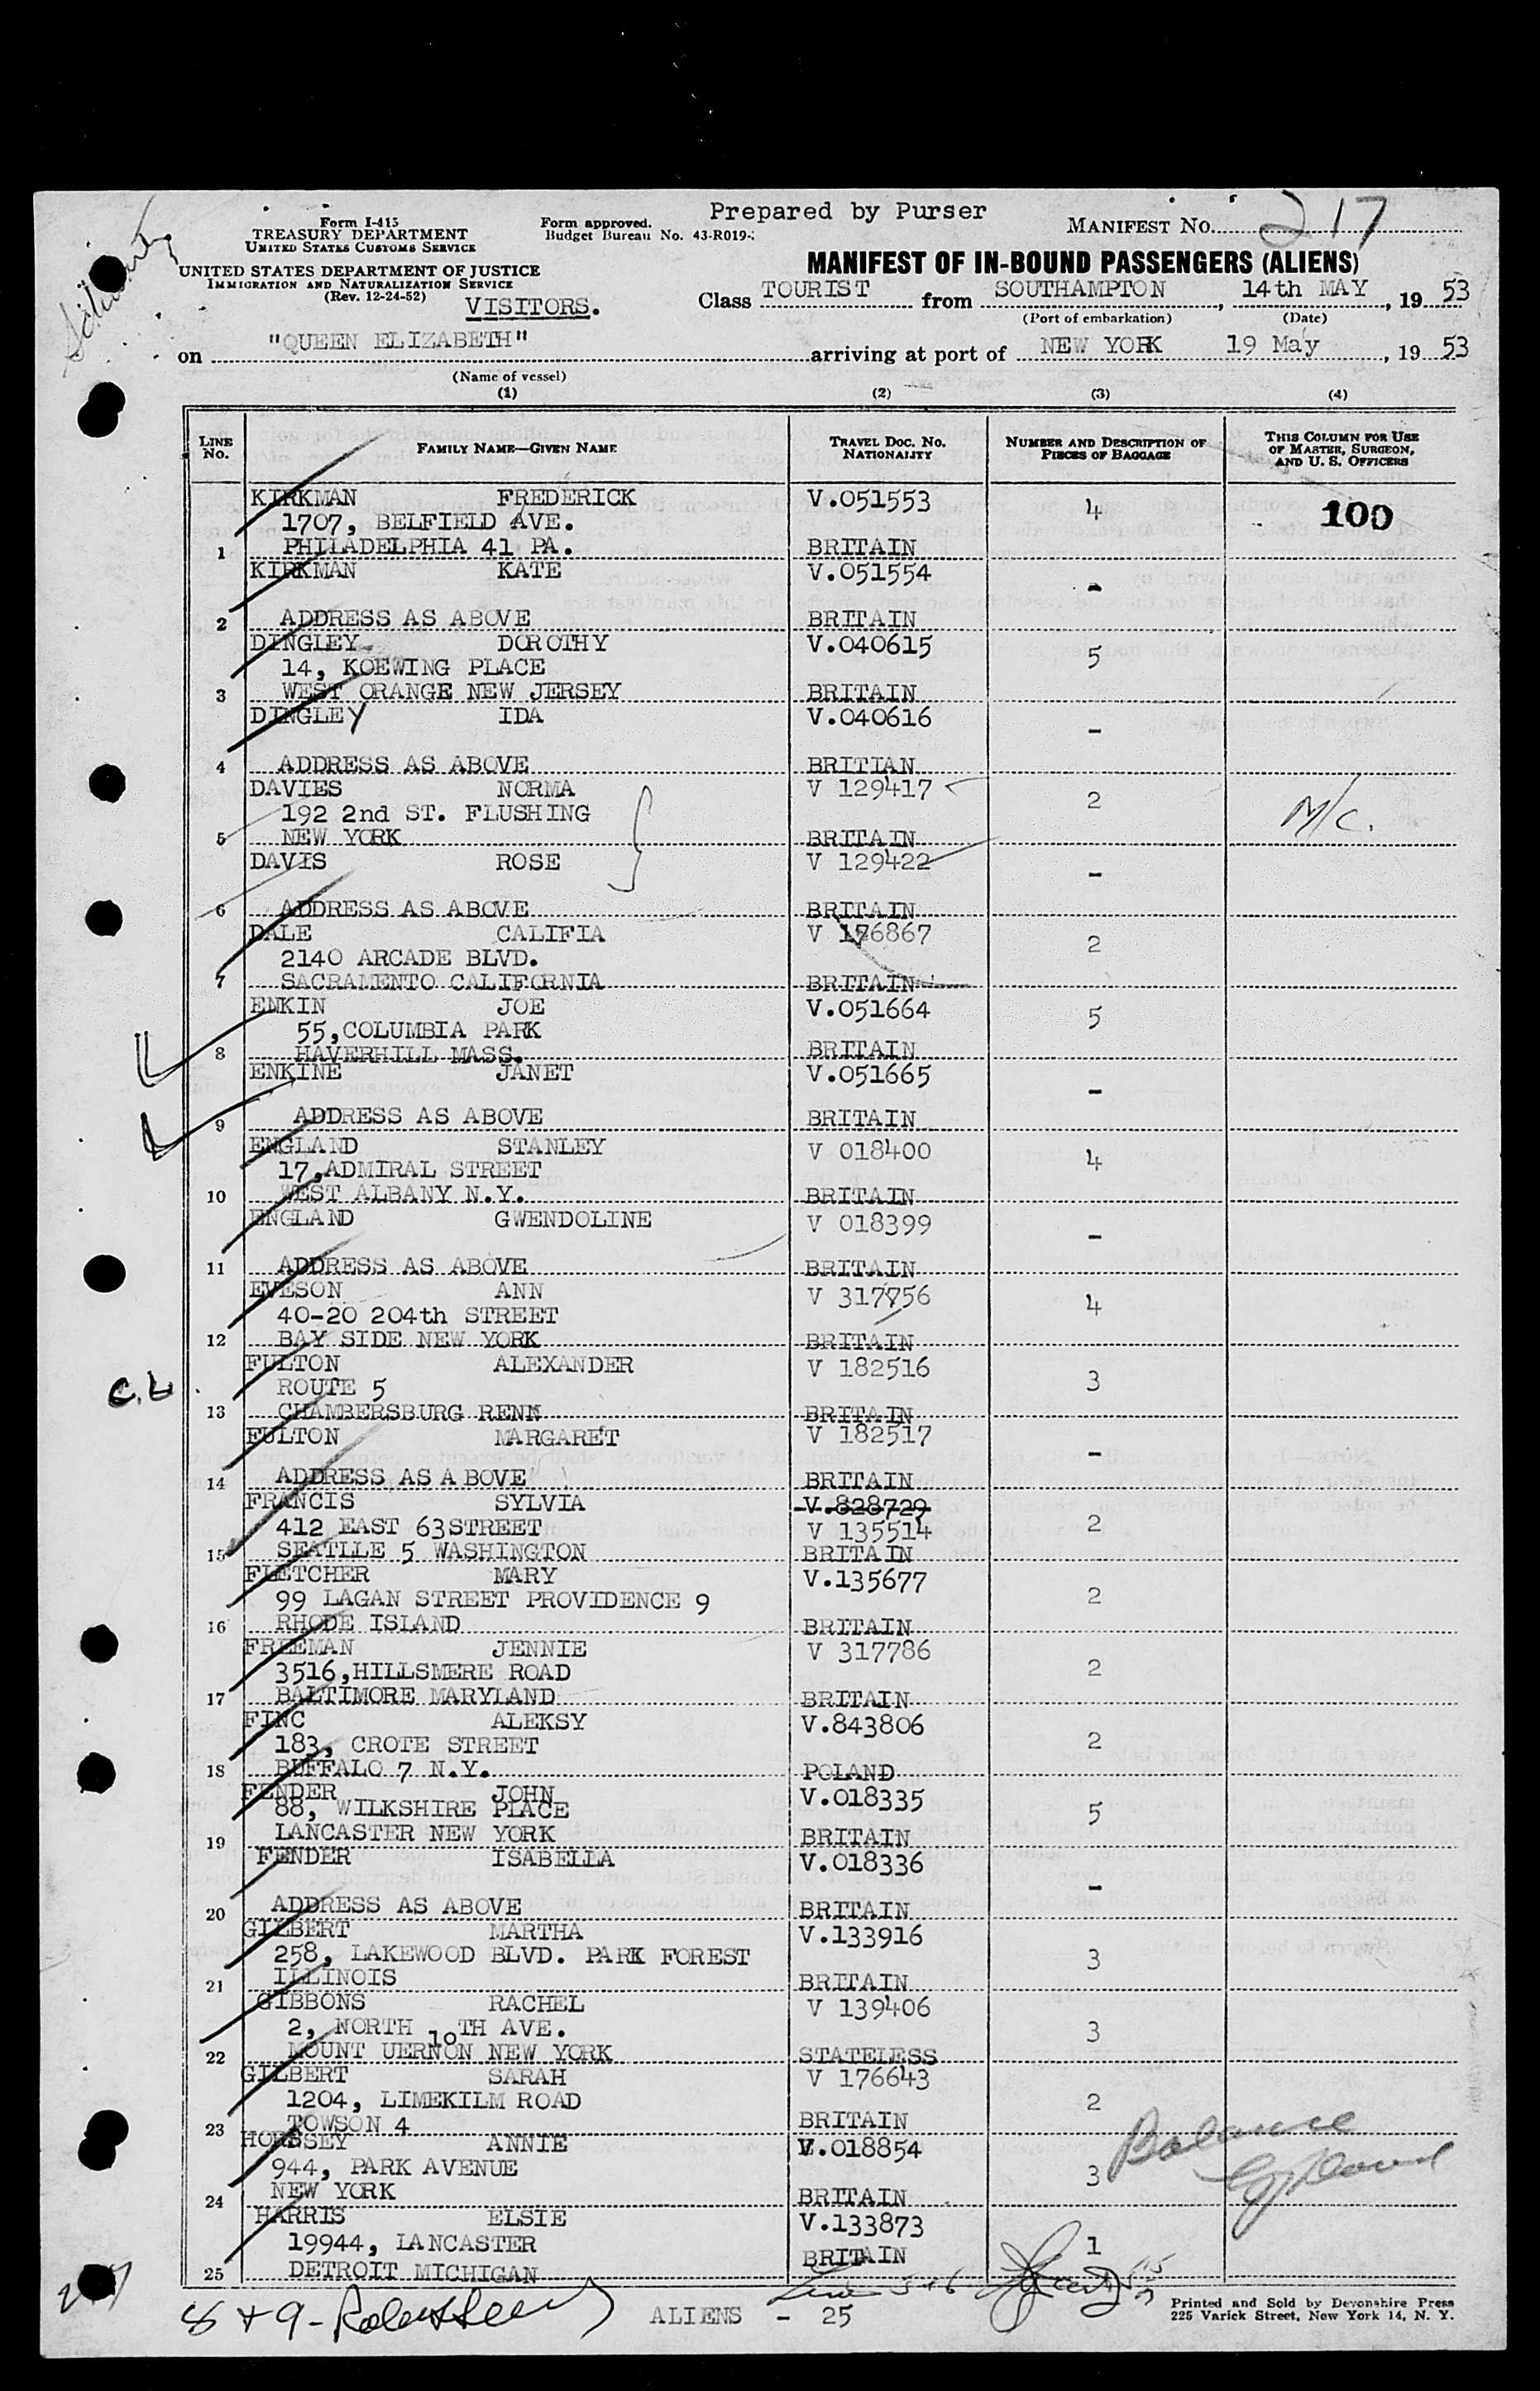 Prepared by Purser
Form I-415
TREASURY DEPARTMENT
UNITED STATES CUSTOMS SERVICE
Form approved.
Budget Bureau No. 43-R019-
MANIFEST No. 217
UNITED STATES DEPARTMENT OF JUSTICE
IMMIGRATION AND NATURALIZATION SERVICE
(Rev. 12-24-52)
VISITORS.
MANIFEST OF IN-BOUND PASSENGERS (ALIENS)
Class TOURIST from SOUTHAMPTON, 14th MAY, 19 53
(Port of embarkation) (Date)
on "QUEEN ELIZABETH" arriving at port of NEW YORK 19 May, 19 53
(Name of vessel)
(1) (2) (3) (4)
LINE No. FAMILY NAME—GIVEN NAME TRAVEL DOC. NO. NATIONALITY NUMBER AND DESCRIPTION OF PIECES OF BAGGAGE THIS COLUMN FOR USE OF MASTER, SURGEON, AND U. S. OFFICERS
KIRKMAN FREDERICK V.051553 4 100
1707, BELFIELD AVE.
1 PHILADELPHIA 41 PA. BRITAIN
KIRKMAN KATE V.051554 -
2 ADDRESS AS ABOVE BRITAIN
DINGLEY DOROTHY V.040615 5
14, KOEWING PLACE
3 WEST ORANGE NEW JERSEY BRITAIN
DINGLEY IDA V.040616 -
4 ADDRESS AS ABOVE BRITIAN
DAVIES NORMA V 129417 2
192 2nd ST. FLUSHING M/C.
5 NEW YORK BRITAIN
DAVIS ROSE V 129422 -
6 ADDRESS AS ABOVE BRITAIN
DALE CALIFIA V 176867 2
2140 ARCADE BLVD.
7 SACRAMENTO CALIFORNIA BRITAIN
ENKIN JOE V.051664 5
55,COLUMBIA PARK
8 HAVERHILL MASS. BRITAIN
ENKINE JANET V.051665 -
9 ADDRESS AS ABOVE BRITAIN
ENGLAND STANLEY V 018400 4
17,ADMIRAL STREET
10 WEST ALBANY N.Y. BRITAIN
ENGLAND GWENDOLINE V 018399 -
11 ADDRESS AS ABOVE BRITAIN
EVESON ANN V 317756 4
40-20 204th STREET
12 BAY SIDE NEW YORK BRITAIN
FULTON ALEXANDER V 182516 3
ROUTE 5
13 CHAMBERSBURG RENN BRITAIN
FULTON MARGARET V 182517 -
14 ADDRESS AS A BOVE BRITAIN
FRANCIS SYLVIA V.828729 2
412 EAST 63STREET V 135514
15 SEATLLE 5 WASHINGTON BRITAIN
FLETCHER MARY V.135677 2
99 LAGAN STREET PROVIDENCE 9
16 RHODE ISLAND BRITAIN
FREEMAN JENNIE V 317786 2
3516,HILLSMERE ROAD
17 BALTIMORE MARYLAND BRITAIN
FINC ALEKSY V.843806 2
183, CROTE STREET
18 BUFFALO 7 N.Y. POLAND
FENDER JOHN V.018335 5
88, WILKSHIRE PLACE
19 LANCASTER NEW YORK BRITAIN
FENDER ISABELLA V.018336 -
20 ADDRESS AS ABOVE BRITAIN
GILBERT MARTHA V.133916 3
258, LAKEWOOD BLVD. PARK FOREST
21 ILLINOIS BRITAIN
GIBBONS RACHEL V 139406 3
2, NORTH 10TH AVE.
22 MOUNT UERNON NEW YORK STATELESS
GILBERT SARAH V 176643 2
1204, LIMEKILM ROAD
23 TOWSON 4 BRITAIN
ANNIE V.018854 3 Balance
944, PARK AVENUE
24 NEW YORK BRITAIN
HARRIS ELSIE V.133873 1
19944, LANCASTER
25 DETROIT MICHIGAN BRITAIN
8 + 9 -
ALIENS - 25
Printed and Sold by Devonshire Press
225 Varick Street, New York 14, N. Y.